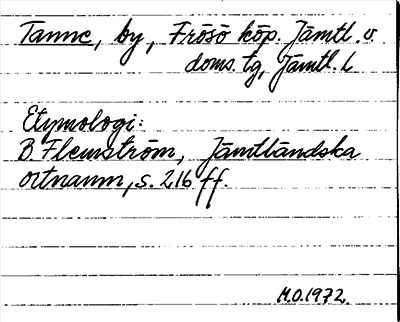 Tanne, by, Frösö köp. Jämtl. v.
doms. tg, Jämtl. l
Etymologi:
B. Flemström, Jämtländska
ortnamn, s. 216 ff.
M.O.1972.